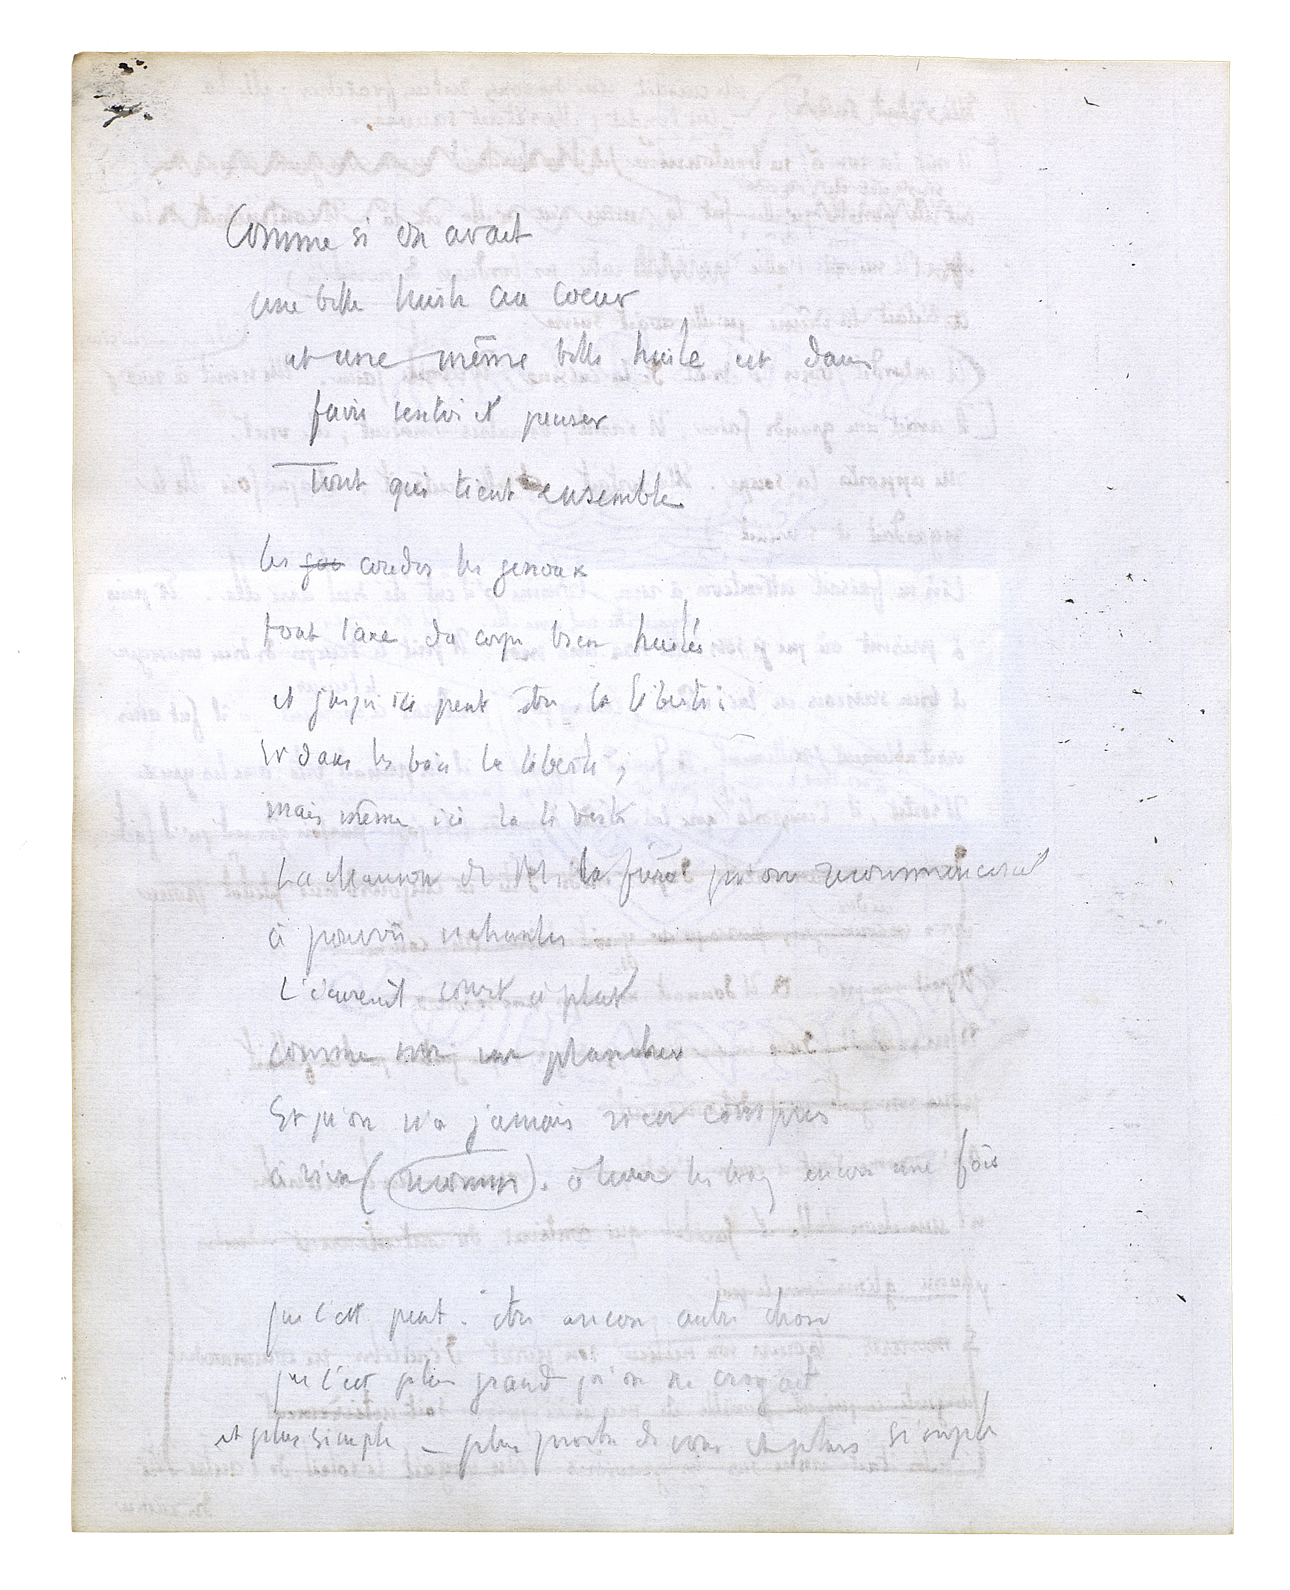 Comme si on avait
une belle huile au coeur
et une même belle huile est dans
faire sentir et penser
Tout qui tient ensemble.
les gen coudes les genoux
tout l'axe du corps bien huilés
et jusqu'ici peut être la liberté;
Et dans les bois la liberté;
mais même ici la liberté
La chanson de la forêt qu'on recommencerait
à pouvoir
L'écureuil court à plat
comme sur un plancher
Et qu'on n'a jamais rien compris
à rien ( ). à les bois encore une fois
que c'est peut-être encore autre chose
que c'est plus grand qu'on ne croyait
et plus simple – plus proche de vous et plus simple